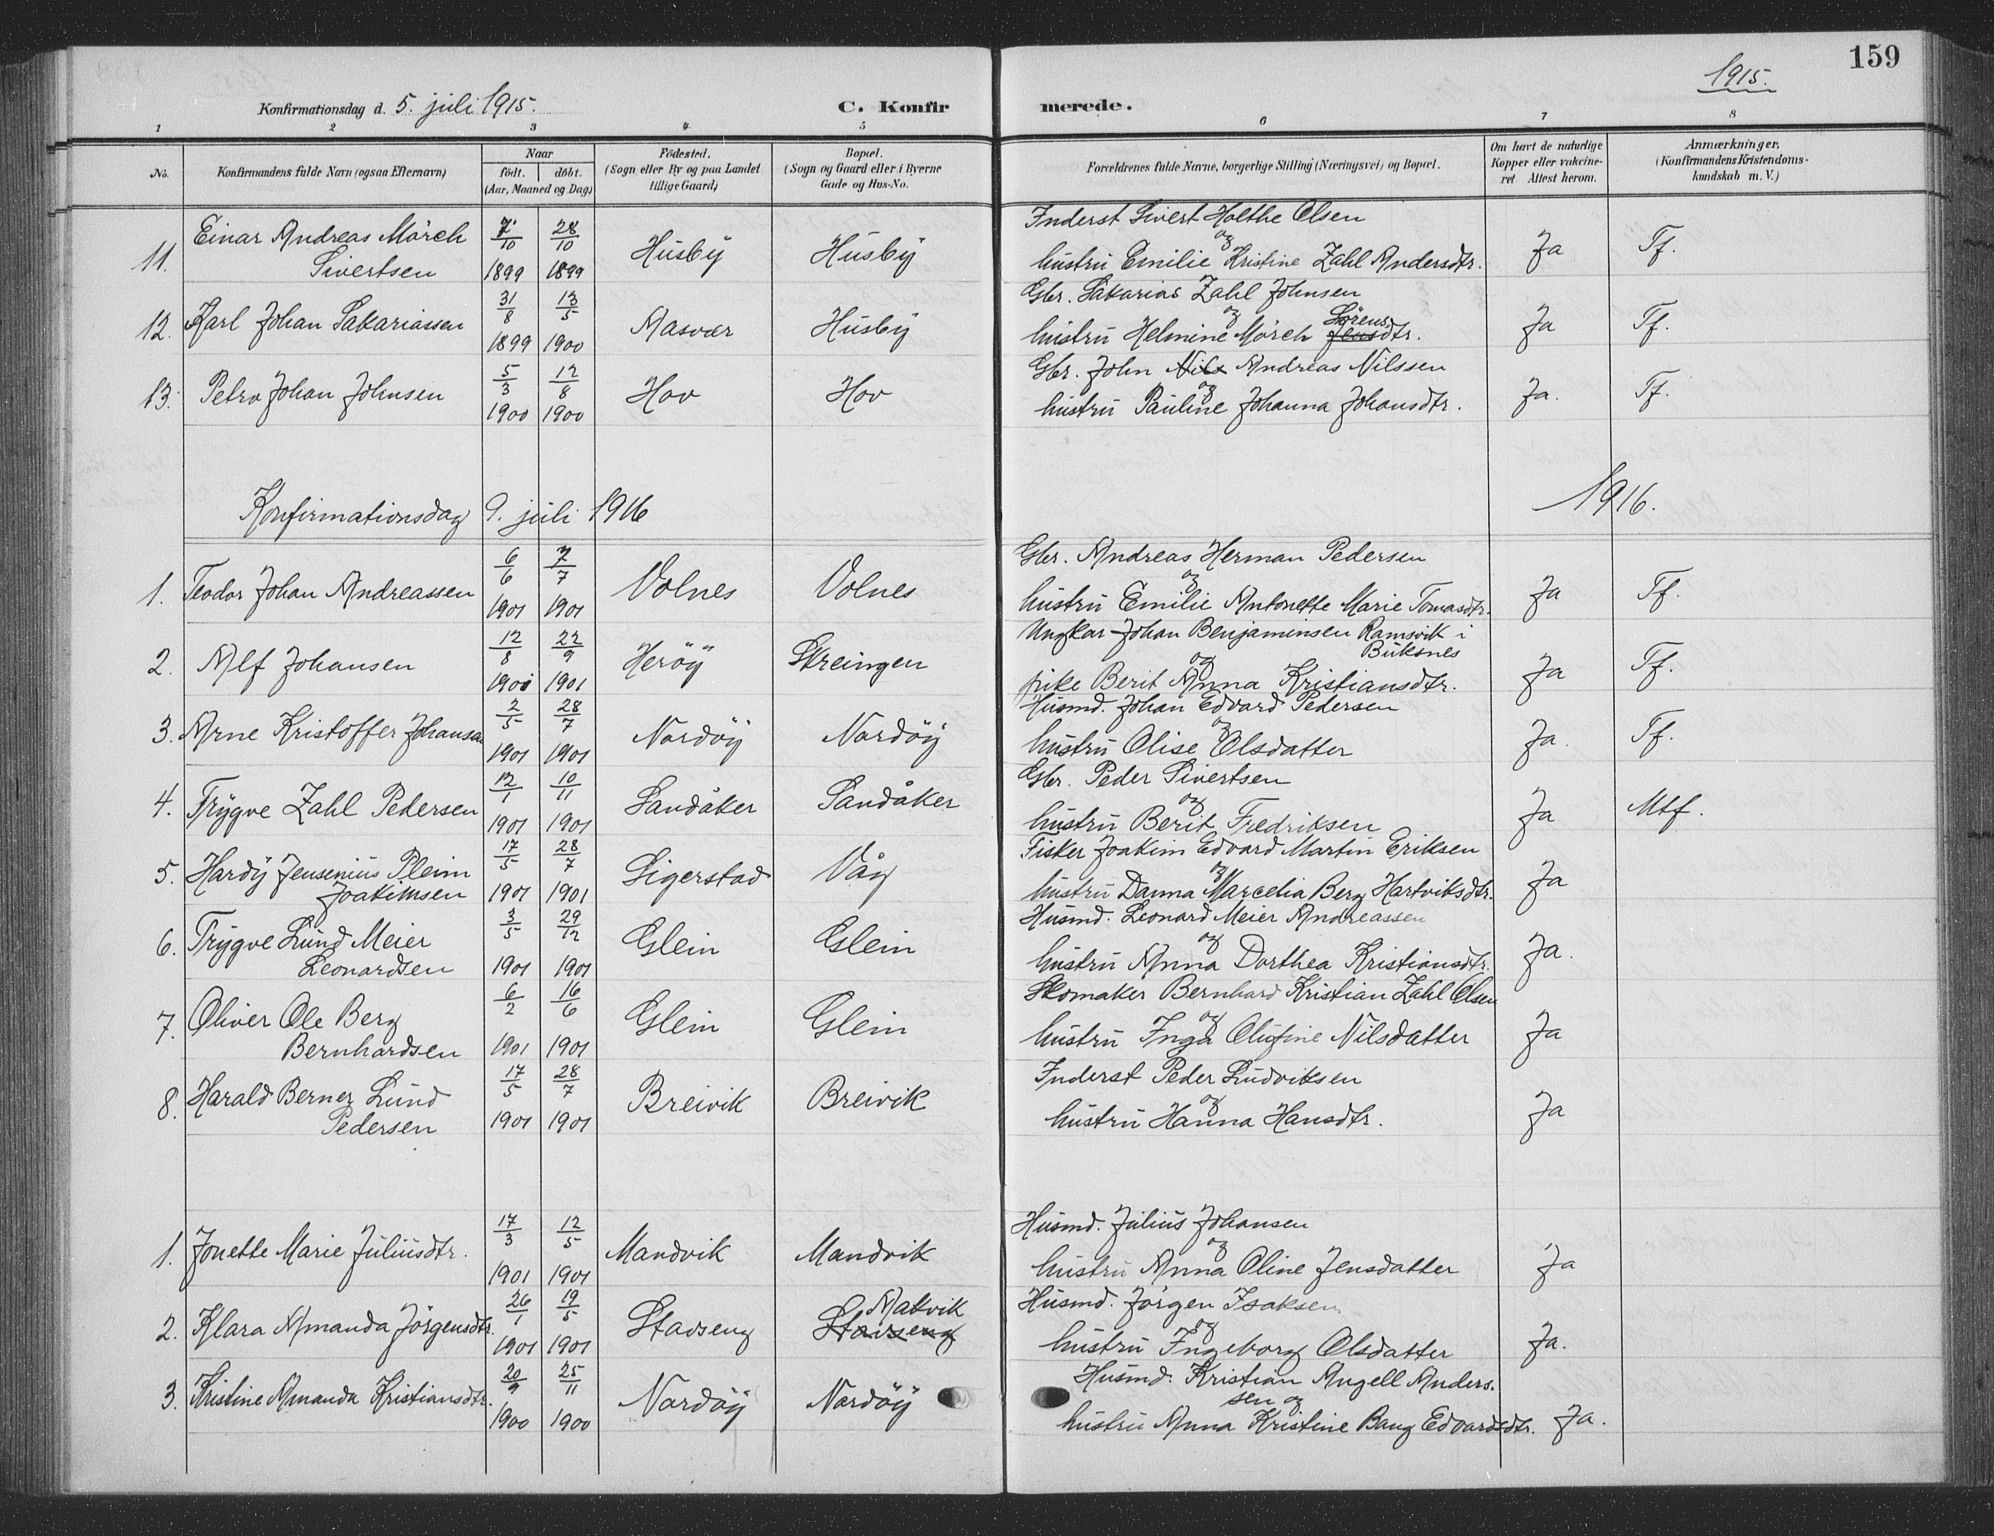 159
1915.
Konfirmationsdag d. 5. juli 1915.
C. Konfirmerede.
1 2 3 4 5 6 7 8
No.
Konfirmandens fulde Navn (ogsaa Efternavn)
Naar
födt. döbt.
(Aar, Maaned og Dag)
Födested.
(Sogn eller By og paa Landet
tillige Gaard)
Bopæl.
(Sogn og Gaard eller i Byerne
Gade og Hus-No.
Forældrenes fulde Navne, borgerlige Stilling (Næringsvei) og Bopæl.
Om havt de naturlige
Kopper eller vakcine-
ret Attest herom.
Anmærkninger.
(Konfirmandens Kristendoms-
kundskab m. V.)
11. Einar Andreas Mörch Sivertsen 7/10 1899 28/10 1899 Husby Husby
Inderst Sivert Holthe Olsen
og
hustru Emilie Kristine Zahl Andersdtr. Ja Tf.
12. Karl Johan Sakariassen 31/8 1899 13/5 1900 Masvær Husby
Gbr. Sakarias Zahl Johnsen
og
hustru Helmine Mörch Jensdtr. Sörens Ja Tf.
13. Petro Johan Johnsen 5/3 1900 12/8 1900 Hov Hov
Gbr. John Nils Andreas Nilssen
og
hustru Pauline Johanna Johansdtr. Ja. Tf.
Konfirmationsdag 9. juli 1916
1916.
1. Teodor Johan Andreassen 6/6 1901 7/7 1901 Volnes Volnes
Gbr. Andreas Herman Pedersen
og
hustru Emilie Antonette Marie Tomasdtr. Ja Tf.
2. Alf Johansen 12/8 1900 22/9 1901 Heröy Skreingen
Ungkar Johan Benjaminsen Ramsvik i
Buksnes
og
pike Berit Anna Kristiansdtr. Ja Tf.
3. Arne Kristoffer Johansen 2/5 1901 28/7 1901 Nordöy Nordöy
Husmd. Johan Edvard Pedersen
og
hustru Olise Olsdatter Ja. Tf.
4. Trygve Zahl Pedersen 12/1 1901 10/11 1901 Sandåker Sandåker
Gbr. Peder Sivertsen
og
hustru Berit Fredriksen Ja Mtf.
5. Hardy Jensenius Pleim Joakimsen 17/5 1901 28/7 1901 Sigerstad Våg
Fisker Joakim Edvard Martin Eriksen
og
hustru Danna Marcelia Berg Hartviksdtr. Ja
6. Trygve Lund Meier Leonardsen 3/5 1901 29/12 1901 Glein Glein
Husmd. Leonard Meier Andreassen
og
hustru Anna Dorthea Kristiansdtr. Ja.
7. Oliver Ole Berg Bernhardsen 6/2 1901 16/6 1901 Glein Glein
Skomaker Bernhard Kristian Zahl Olsen
og
hustru Inga Olufine Nilsdatter Ja
8. Harald Berner Lund Pedersen 17/5 1901 28/7 1901 Breivik Breivik
Inderst Peder Ludviksen
og
hustru Hanna Hansdtr. Ja
1. Jonette Marie Juliusdtr. 17/3 1901 12/5 1901 Mandvik Mandvik
Husmd. Julius Johansen
og
hustru Anna Oline Jensdatter Ja
2. Klara Amanda Jörgensdtr. 26/1 1901 19/5 1901 Stavseng Stavseng Makvik
Husmd. Jörgen Isaksen
og
hustru Ingeborg Olsdatter Ja.
3. Kristine Amanda Kristiansdtr. 20/9 1900 25/11 1900 Nordöy Nordöy
Husmd. Kristian Angell Anders-
sen og
hustru Anna Kristine Baug Edvardsdtr. Ja.